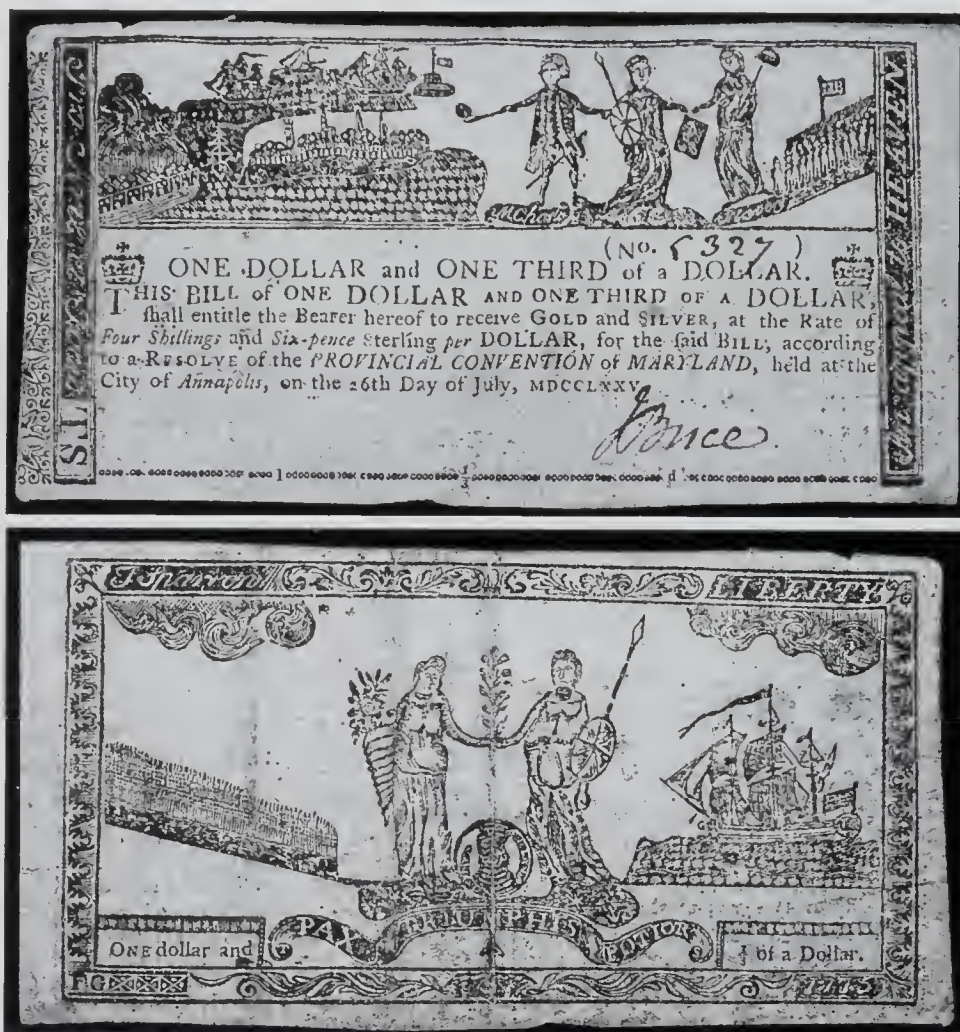 (No. 5327)
ONE DOLLAR and ONE THIRD of a DOLLAR.
THIS BILL of ONE DOLLAR AND ONE THIRD OF A DOLLAR,
ſhall entitle the Bearer hereof to receive GOLD and SILVER, at the Rate of
Four Shillings and Six-pence Sterling per DOLLAR, for the ſaid BILL, according
to a RESOLVE of the PROVINCIAL CONVENTION of MARYLAND, held at the
City of Annapolis, on the 26th Day of July, MDCCLXXV.
HEAVEN
LIBERTY
PAX TRIUMPHIS POTIOR
ONE dollar and
⅓ of a Dollar.
FG
1775